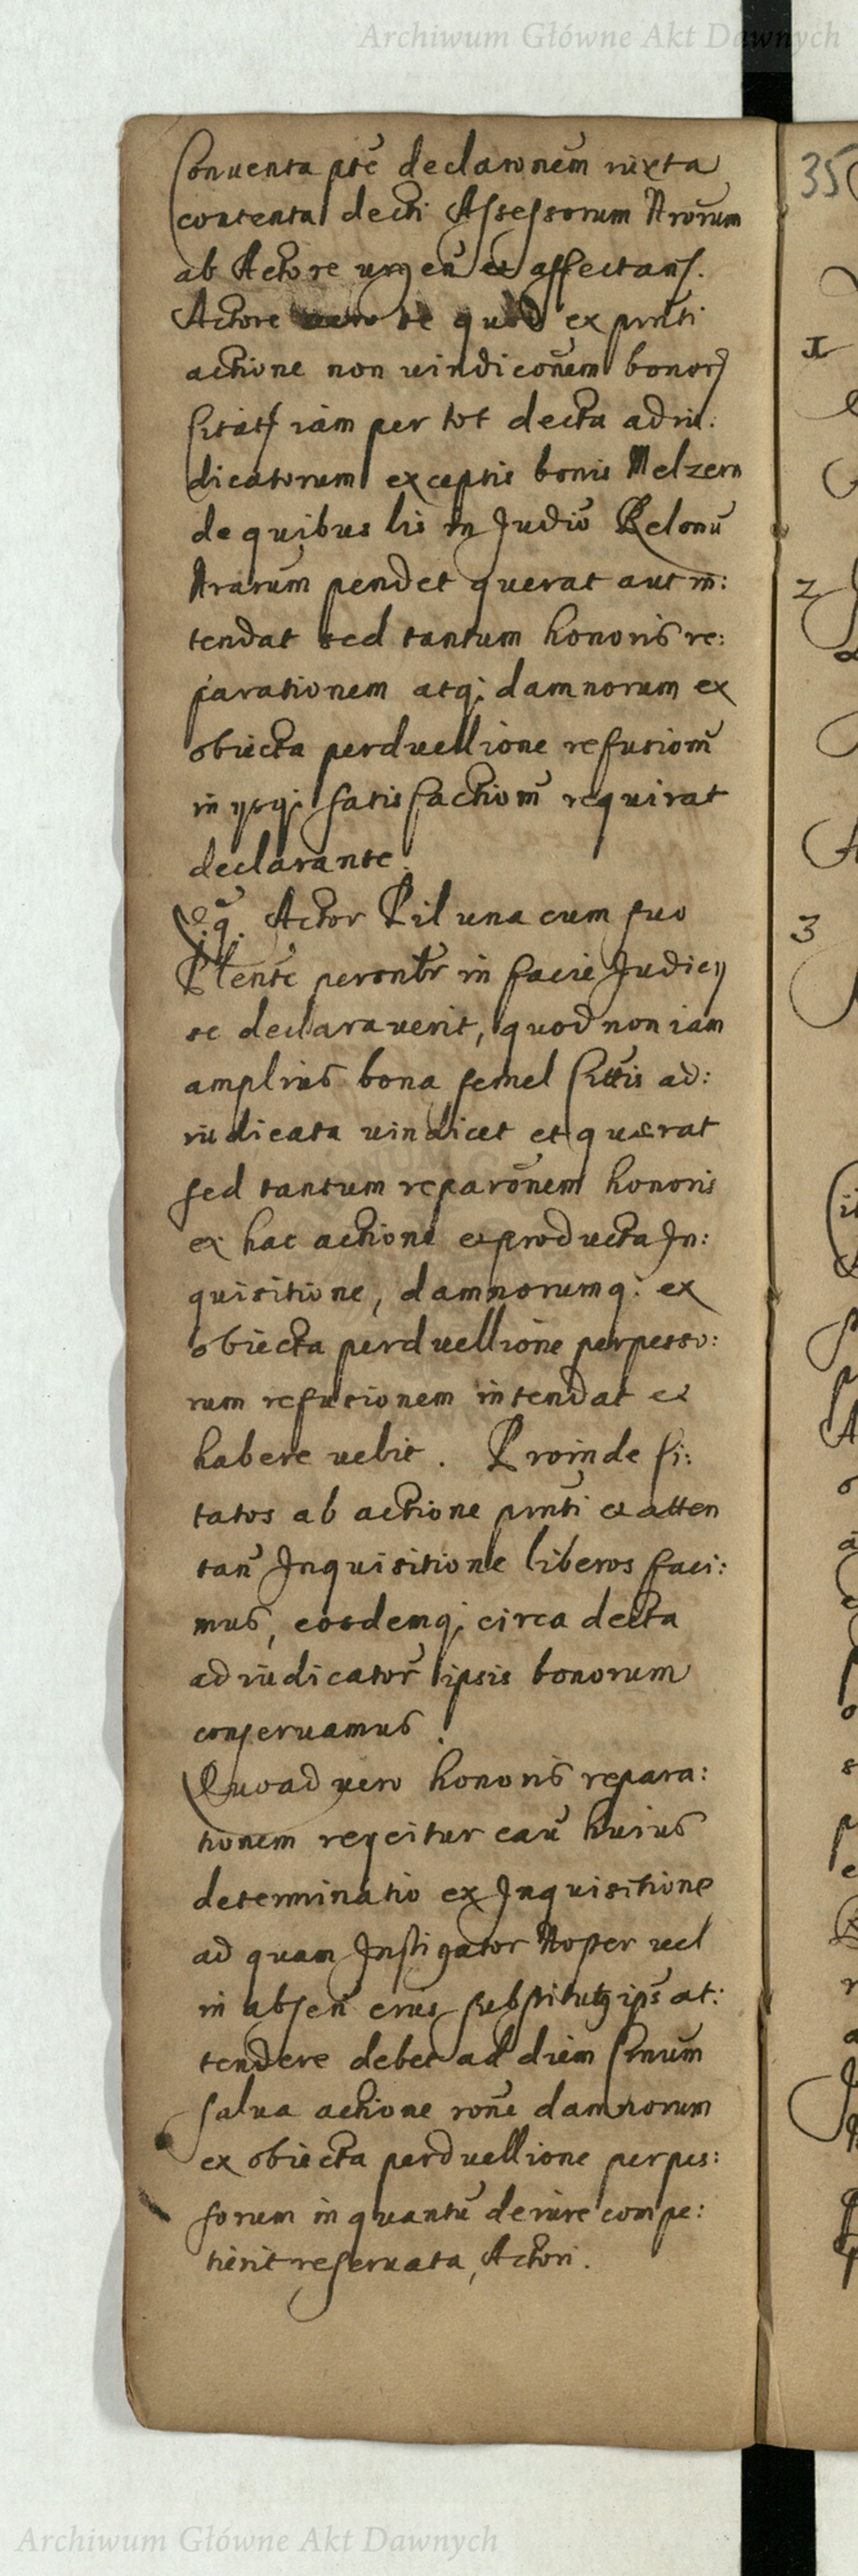 Archiwum Główne Akt Dawnych
Conuenta pte declaronem iuxta
contenta decti Assessorum Nrorum
ab Actore urgen et affectans.
Actore vero se quod ex pnti
actione non uindiconem bonor
Citat iam per tot decta adiu:
dicatorum exceptis bonis Melzern
de quibus lis in Judio Relonu
Nrarum pendet querat aut in:
tendat sed tantum honoris re:
parationem atq; damnorum ex
obiecta perduellione refusiom
in ysq; satisfactiom requirat
declarante.
Actor Pil una cum suo
Plente personlr in facie Judicy
se declarauerit, quod non iam
amplius bona semel Cittis ad:
iudicata uindicet et quaerat
sed tantum reparonem honoris
ex hac actione et producta In:
quisitione, damnorumq; ex
obiecta perduellione perpesso:
rum refusionem intendat et
habere uelit. Proinde Ci:
tatos ab actione pnti et atten
tan Inquisitione liberos faci:
mus, eosdemq; circa decta
adiudicator ipsis bonorum
conseruamus.
Quoad uero honoris repara:
tionem reycitur cau huius
determinatio ex Inquisitione
ad quam Instigator Noster uel
in absen eius substitutg ips at:
tendere debet ad diem Crnum
salua actione rone damnorum
ex obiecta perduellione perpes:
sorum in quantu deiure compe:
tierit reseruata, Actori.
35
1
2
3
Archiwum Główne Akt Dawnych